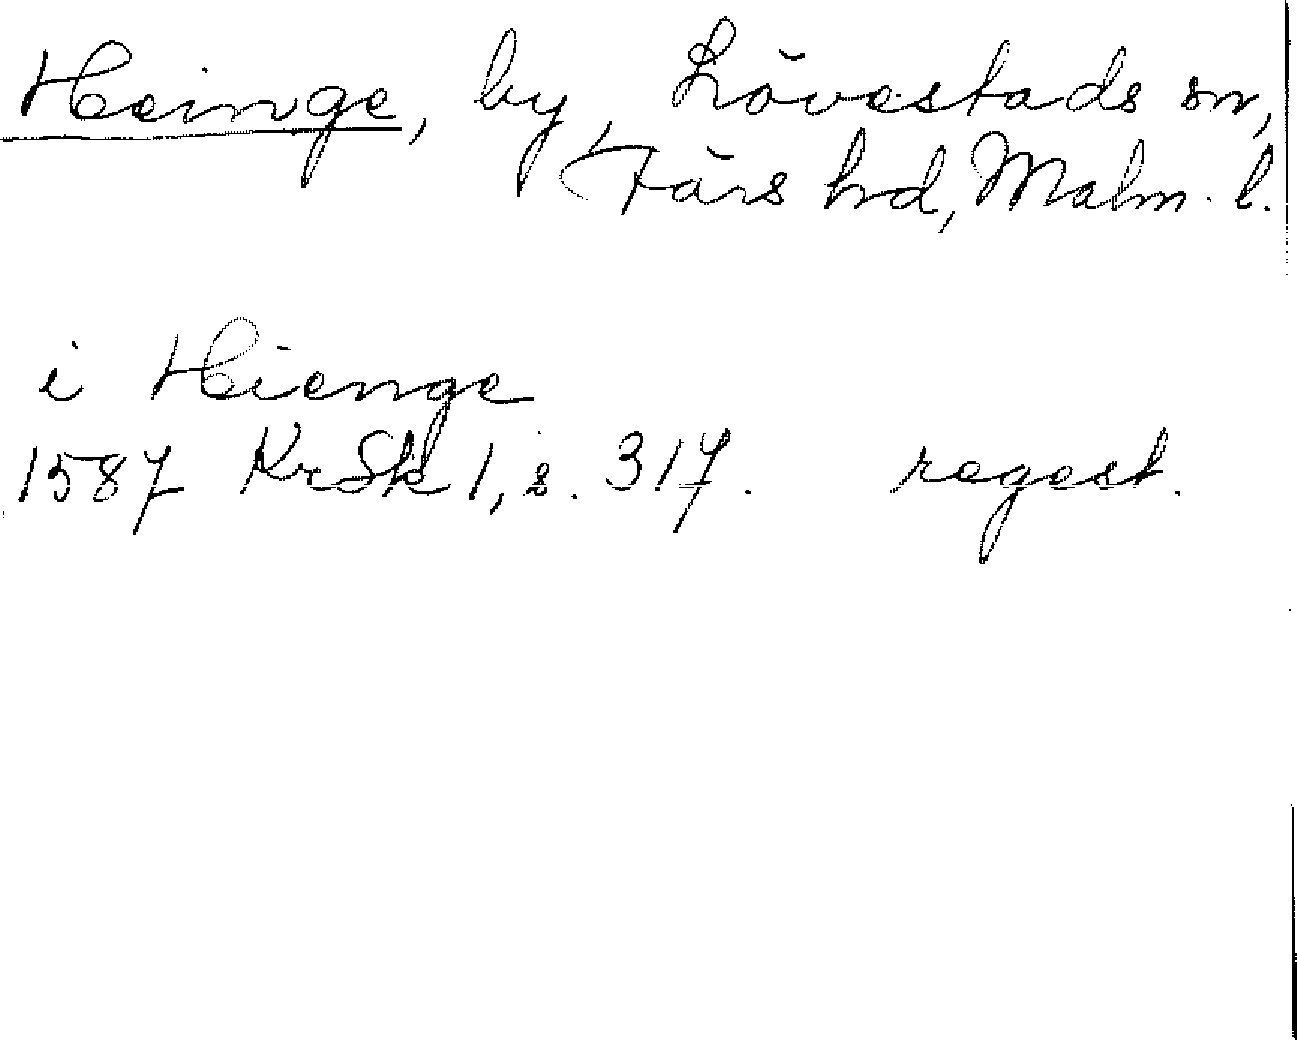 Heinge, by, Lövestads sn,
Färs hd, Malm. l.
i Hienge
1587 KrSk 1, s. 317. regest.